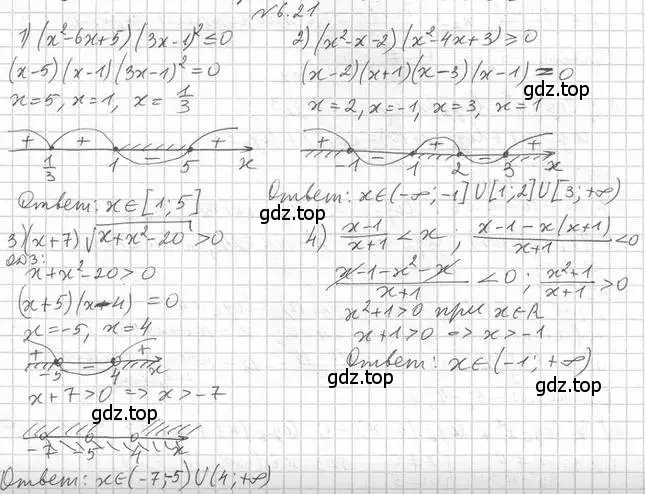 №6.21
1) (x²-6x+5)(3x-1)²≤0
(x-5)(x-1)(3x-1)²=0
x=5, x=1, x=1/3
+ + - +
1/3 1 5 x
Ответ: x∈[1;5]
2) (x²-x-2)(x²-4x+3)≥0
(x-2)(x+1)(x-3)(x-1)=0
x=2, x=-1, x=3, x=1
gdz.top
+ - + - +
-1 1 2 3 x
Ответ: x∈(-∞;-1]∪[1;2]∪[3;+∞)
gdz.top
3) (x+7)√(x+x²-20)>0
ОДЗ:
x+x²-20>0
(x+5)(x-4)=0
x=-5, x=4
gdz.top
+ - +
-5 4 x
x+7>0 => x>-7
-7 -5 4 x
gdz.top
Ответ: x∈(-7;-5)∪(4;+∞)
4) (x-1)/(x+1)<x; (x-1-x(x+1))/(x+1)<0
gdz.top
(x-1-x²-x)/(x+1)<0; (x²+1)/(x+1)>0
x²+1>0 при x∈R
x+1>0 => x>-1
Ответ: x∈(-1;+∞)
gdz.top